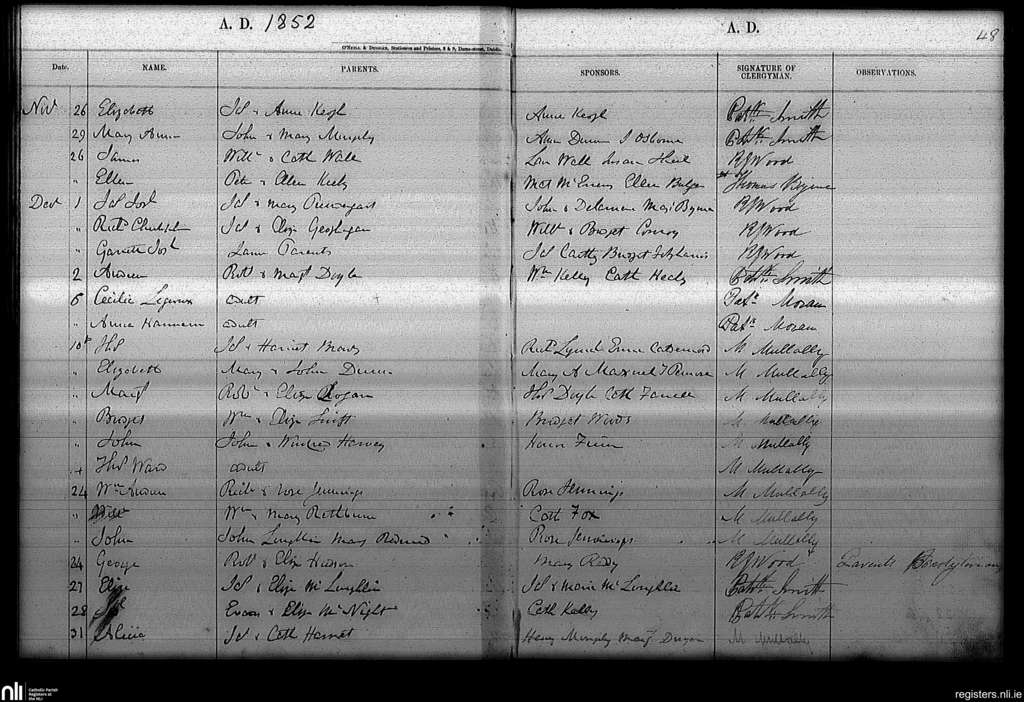 A. D. 1852 A. D. 48
O'Neill & Duggan, Stationers and Printers, 8 & 9, Dame-street, Dublin
Date. NAME. PARENTS. SPONSORS. SIGNATURE OF CLERGYMAN. OBSERVATIONS.
Nov 26 Elizabeth Js & Anne Keogh Anne Keogh Patk Smith
29 Mary Anne John & Mary Murphy Anne Dunn J Osborne Patk Smith
26 James Willm & Cath Wall Wall Susan RJ Wood
" Ellen Peter & Ellen Keely Mat McEvery Ellen Thomas Byrne
Decr 1 Js Josh Js & Mary John & Mary Byrne RJ Wood
" Richd Christopher Js & Eliza Geoghegan Willm & Bridget Conroy RJ Wood
" Garrett Josh Same Parents Js Bridget RJ Wood
2 Andrew Robt & Margt Doyle Wm Kelly Cath Healy Patk Smith
6 Cecilia adult Patk Moran
" Anne adult Patk Moran
10th Ths Js & Harriet Richd Lynch M Mullally
" Elizabeth Mary & John Dunn Mary A Maxwell M Mullally
" Margt Robt & Eliza Logan Ths Doyle Cath Farrell M Mullally
" Bridget Wm & Eliza Swift Bridget Woods M Mullally
" John John & Winifred Harvey Honor M Mullally
" Ths Ward adult M Mullally
24 Wm Andrew Richd & Rose Jennings Rose Jennings M Mullally
" Willm Wm & Mary Rathburne Cath Fox M Mullally
" John John Loughlin Mary Redmond Rose Jennings M Mullally
24 George Robt & Eliza Mary Reddy RJ Wood Parents
27 Eliza Js & Eliza McLoughlin Js & Maria McLoughlin Patk Smith
28 Evan & Eliza McNight Cath Kelly Patk Smith
31 Alicia Js & Cath Harriet Henry Murphy Margt M Mullally
nli
Catholic Parish
Registers at
the NLI
registers.nli.ie